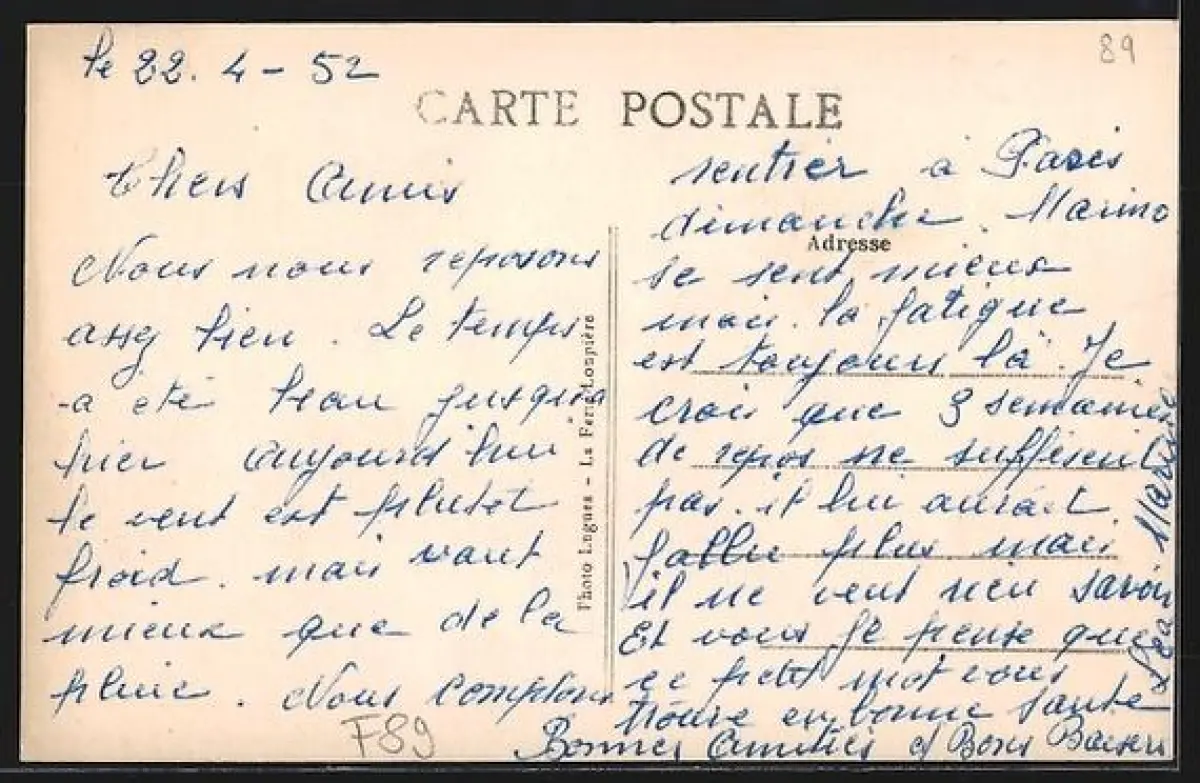 le 22. 4 - 52
89
CARTE POSTALE
Chers Amis
Nous nous reposons
assez bien. Le temps
a été beau jusqu'a
hier aujourd'hui
le vent est plutot
froid. mais vaut
mieux que de la
pluie. Nous comptons
F89
Photo Lugues - La Ferté-Loupière
rentrer à Paris
dimanche. Marino
Adresse
se sent mieux
mais la fatigue
est toujours là. Je
crois que 3 semaines
de repos ne suffisent
pas. il lui aurait
fallu plus mais
il ne veut rien savoir
Et vous je pense que
ce petit mot vous
trouve en bonne santé
Bonnes Amitiés et Bons Baisers